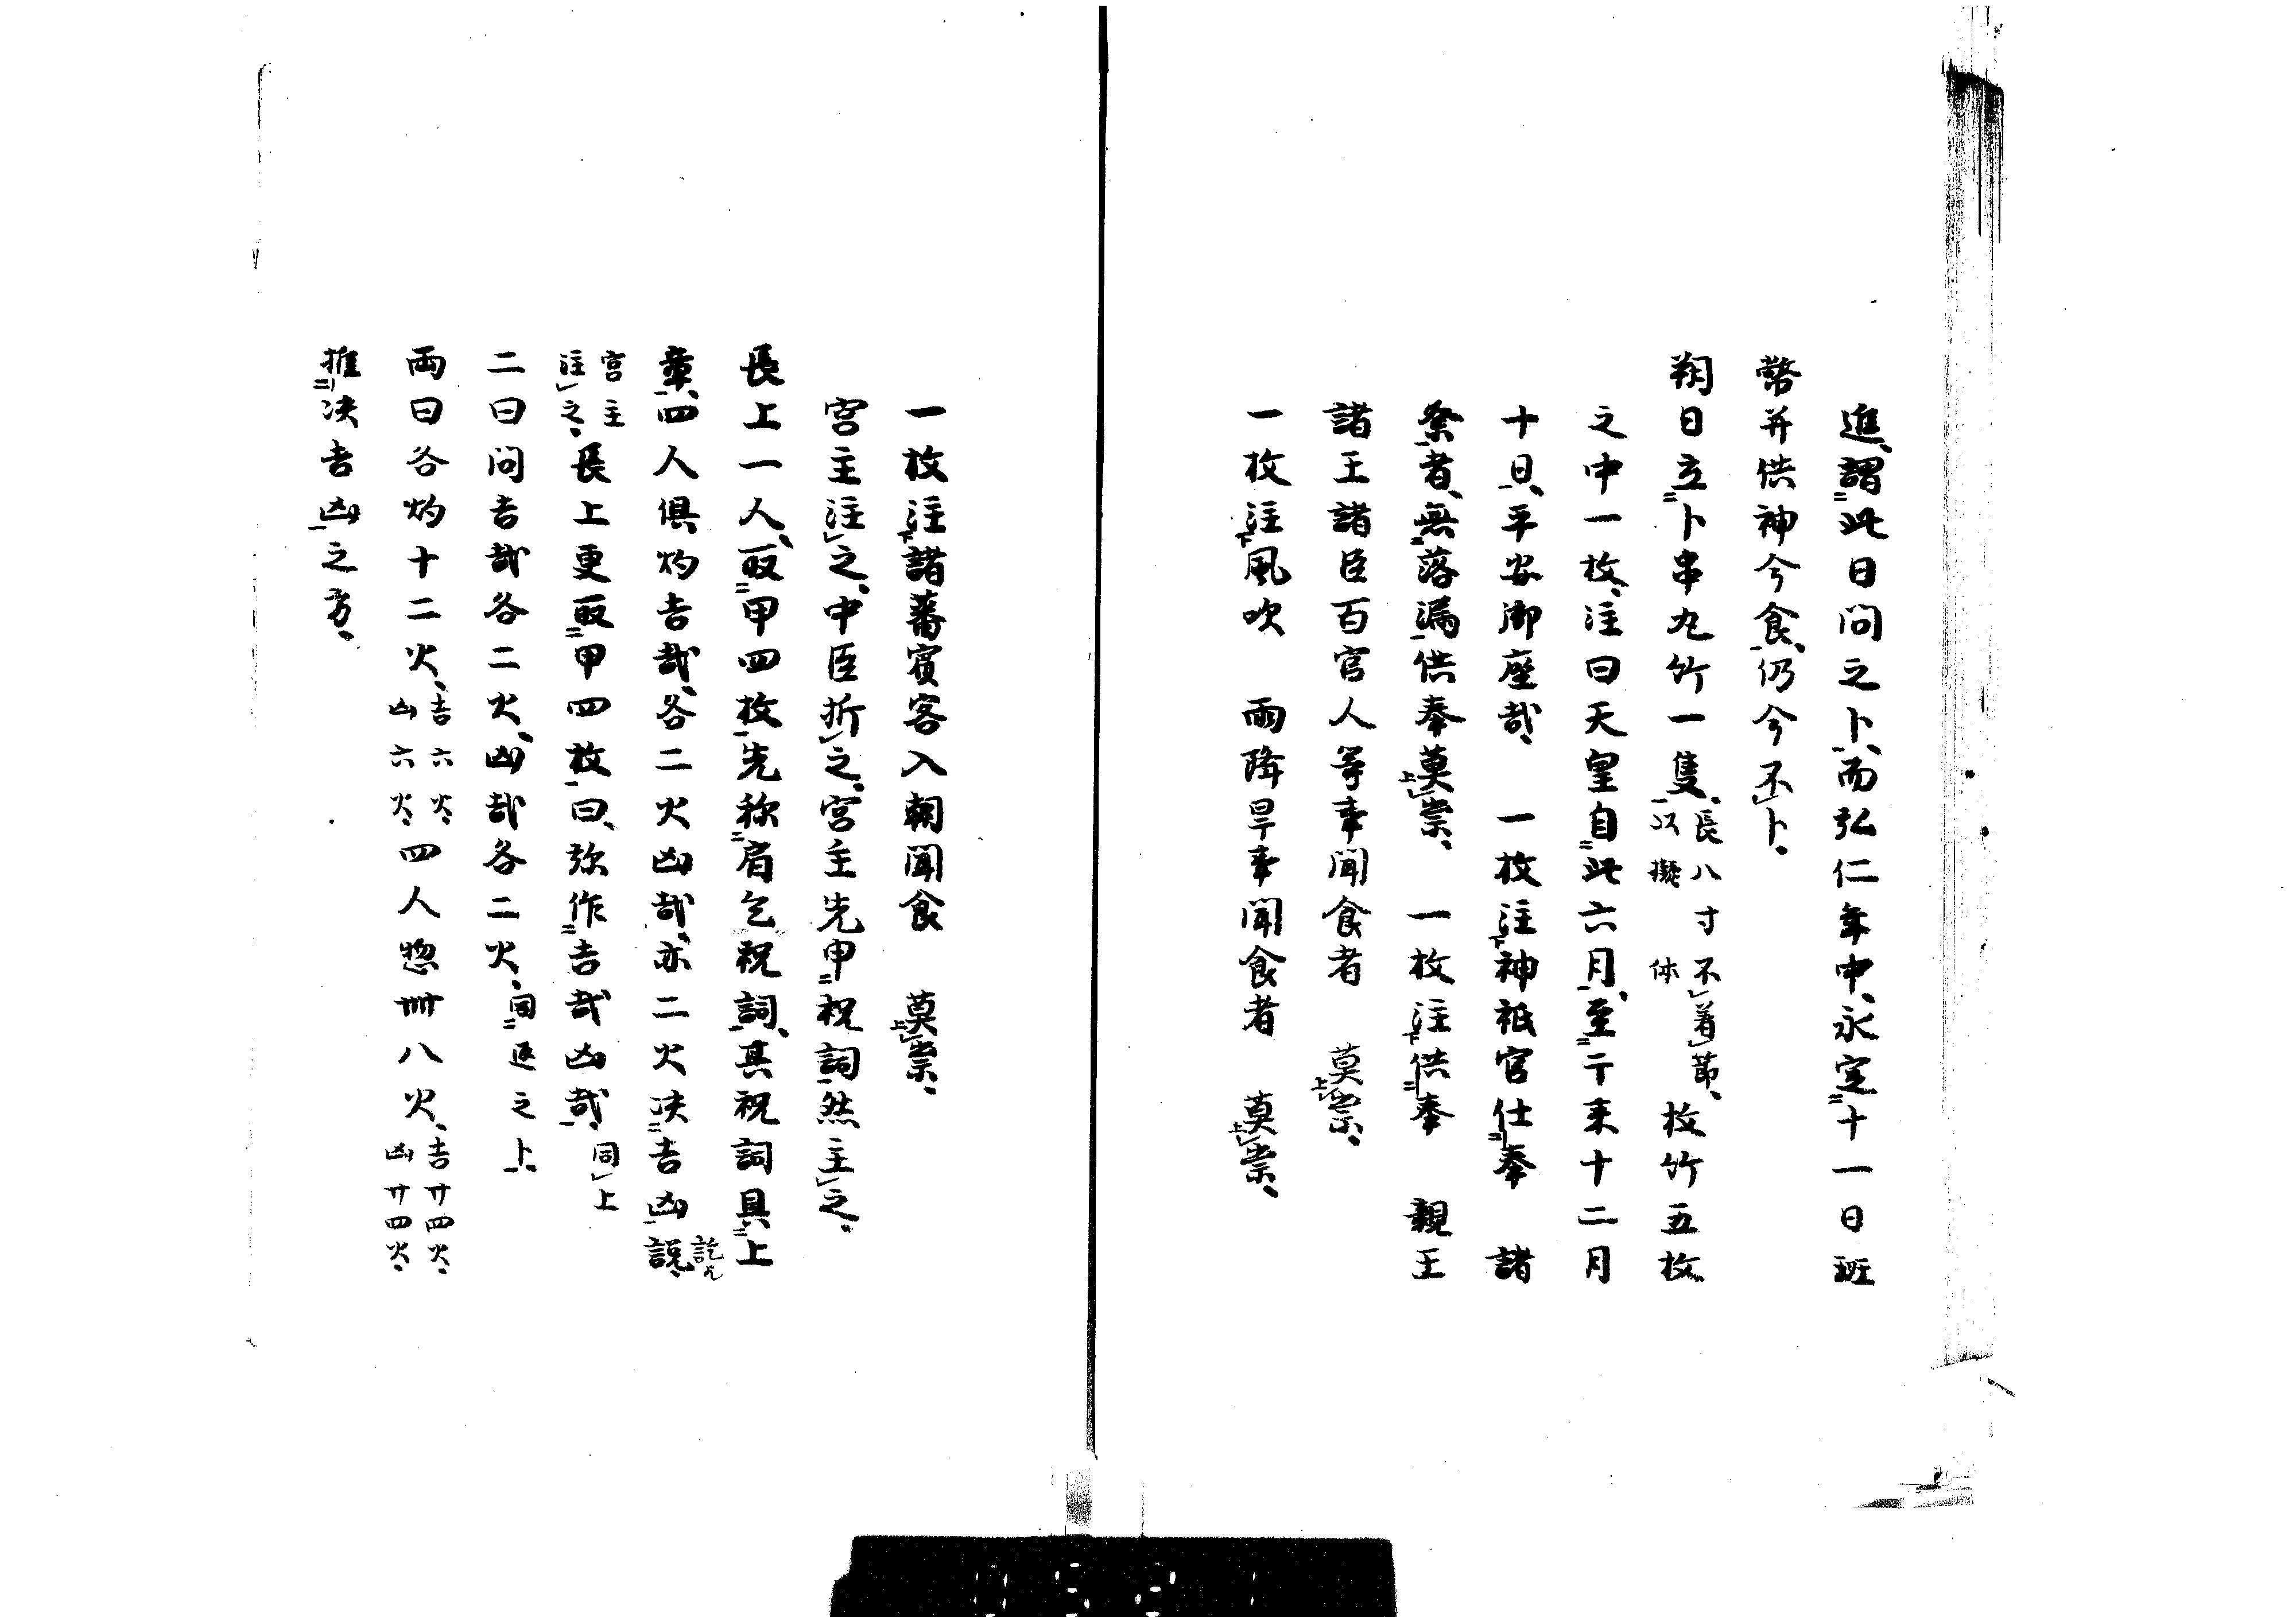 進、謂此日問之卜、而弘仁年中、永定十一日班
幣并供神今食、仍今不卜、
朔日立卜串丸竹一隻、長八寸不着節、以擬体 枚竹五枚
之中一枚、注曰天皇自此六月、至于来十二月
十日、平安御座哉、 一枚注神祇官仕奉 諸
祭者、無落漏供奉莫祟、 一枚注供奉 親王
諸王諸臣百官人等事聞食者 莫祟、
一枚注風吹 雨降旱事聞食者 莫祟、
一枚注諸蕃賓客入朝聞食 莫祟、
宮主注之、中臣折之、宮主先申祝詞然主之、
長上一人、取甲四枚先称肩乞祝詞、其祝詞具上
章、四人俱灼吉哉、各二火凶哉、亦二火決吉凶説、
宮主注之、長上更取甲四枚曰、弥作吉哉凶哉、同上
二曰問吉哉各二火、凶哉各二火、同返之卜、
両曰各灼十二火、吉六火、凶六火、四人惣卌八火、吉廿四火、凶廿四火、
推决吉凶之方、